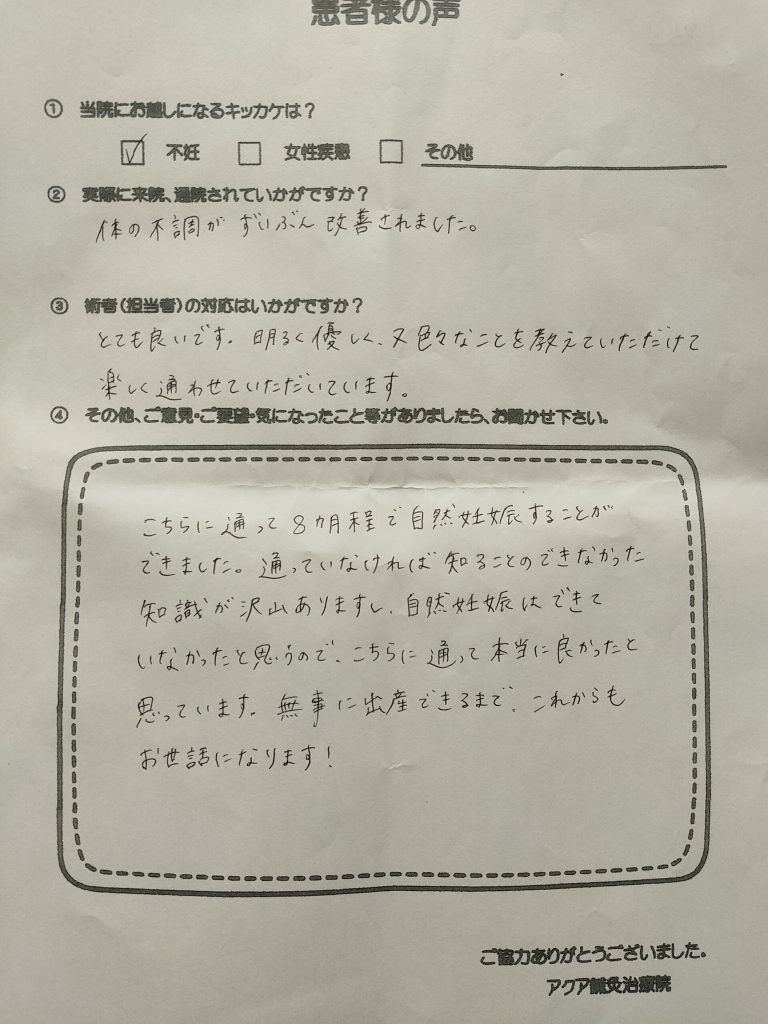 患者様の声
① 当院にお越しになるキッカケは？
☑ 不妊 □ 女性疾患 □ その他
② 実際に来院、通院されていかがですか？
体の不調が ずいぶん 改善されました。
③ 術者（担当者）の対応はいかがですか？
とても良いです。明るく優しく、又色々なことを教えていただけて
楽しく通わせていただいています。
④ その他、ご意見・ご要望・気になったこと等がありましたら、お聞かせ下さい。
こちらに通って8カ月程で自然妊娠することが
できました。通っていなければ知ることのできなかった
知識が沢山ありますし、自然妊娠はできて
いなかったと思うので、こちらに通って本当に良かったと
思っています。無事に出産できるまで、これからも
お世話になります！
ご協力ありがとうございました。
アクア鍼灸治療院